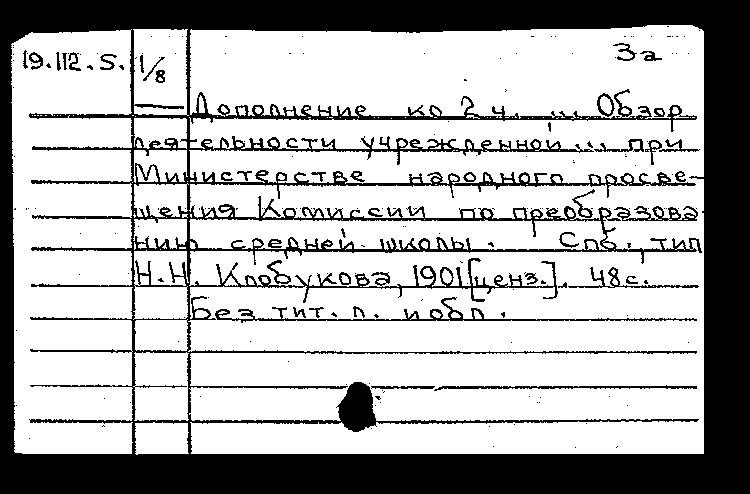 За
19.112.5. 1/8
Дополнение ко 2 ч. ... Обзор
деятельности учрежденной ... при
Министерстве народного просве-
щения Комиссии по преобразова-
нию средней школы. Спб., тип
Н.Н. Клобукова, 1901 [ценз.]. 48 с.
Без тит. л. и обл.